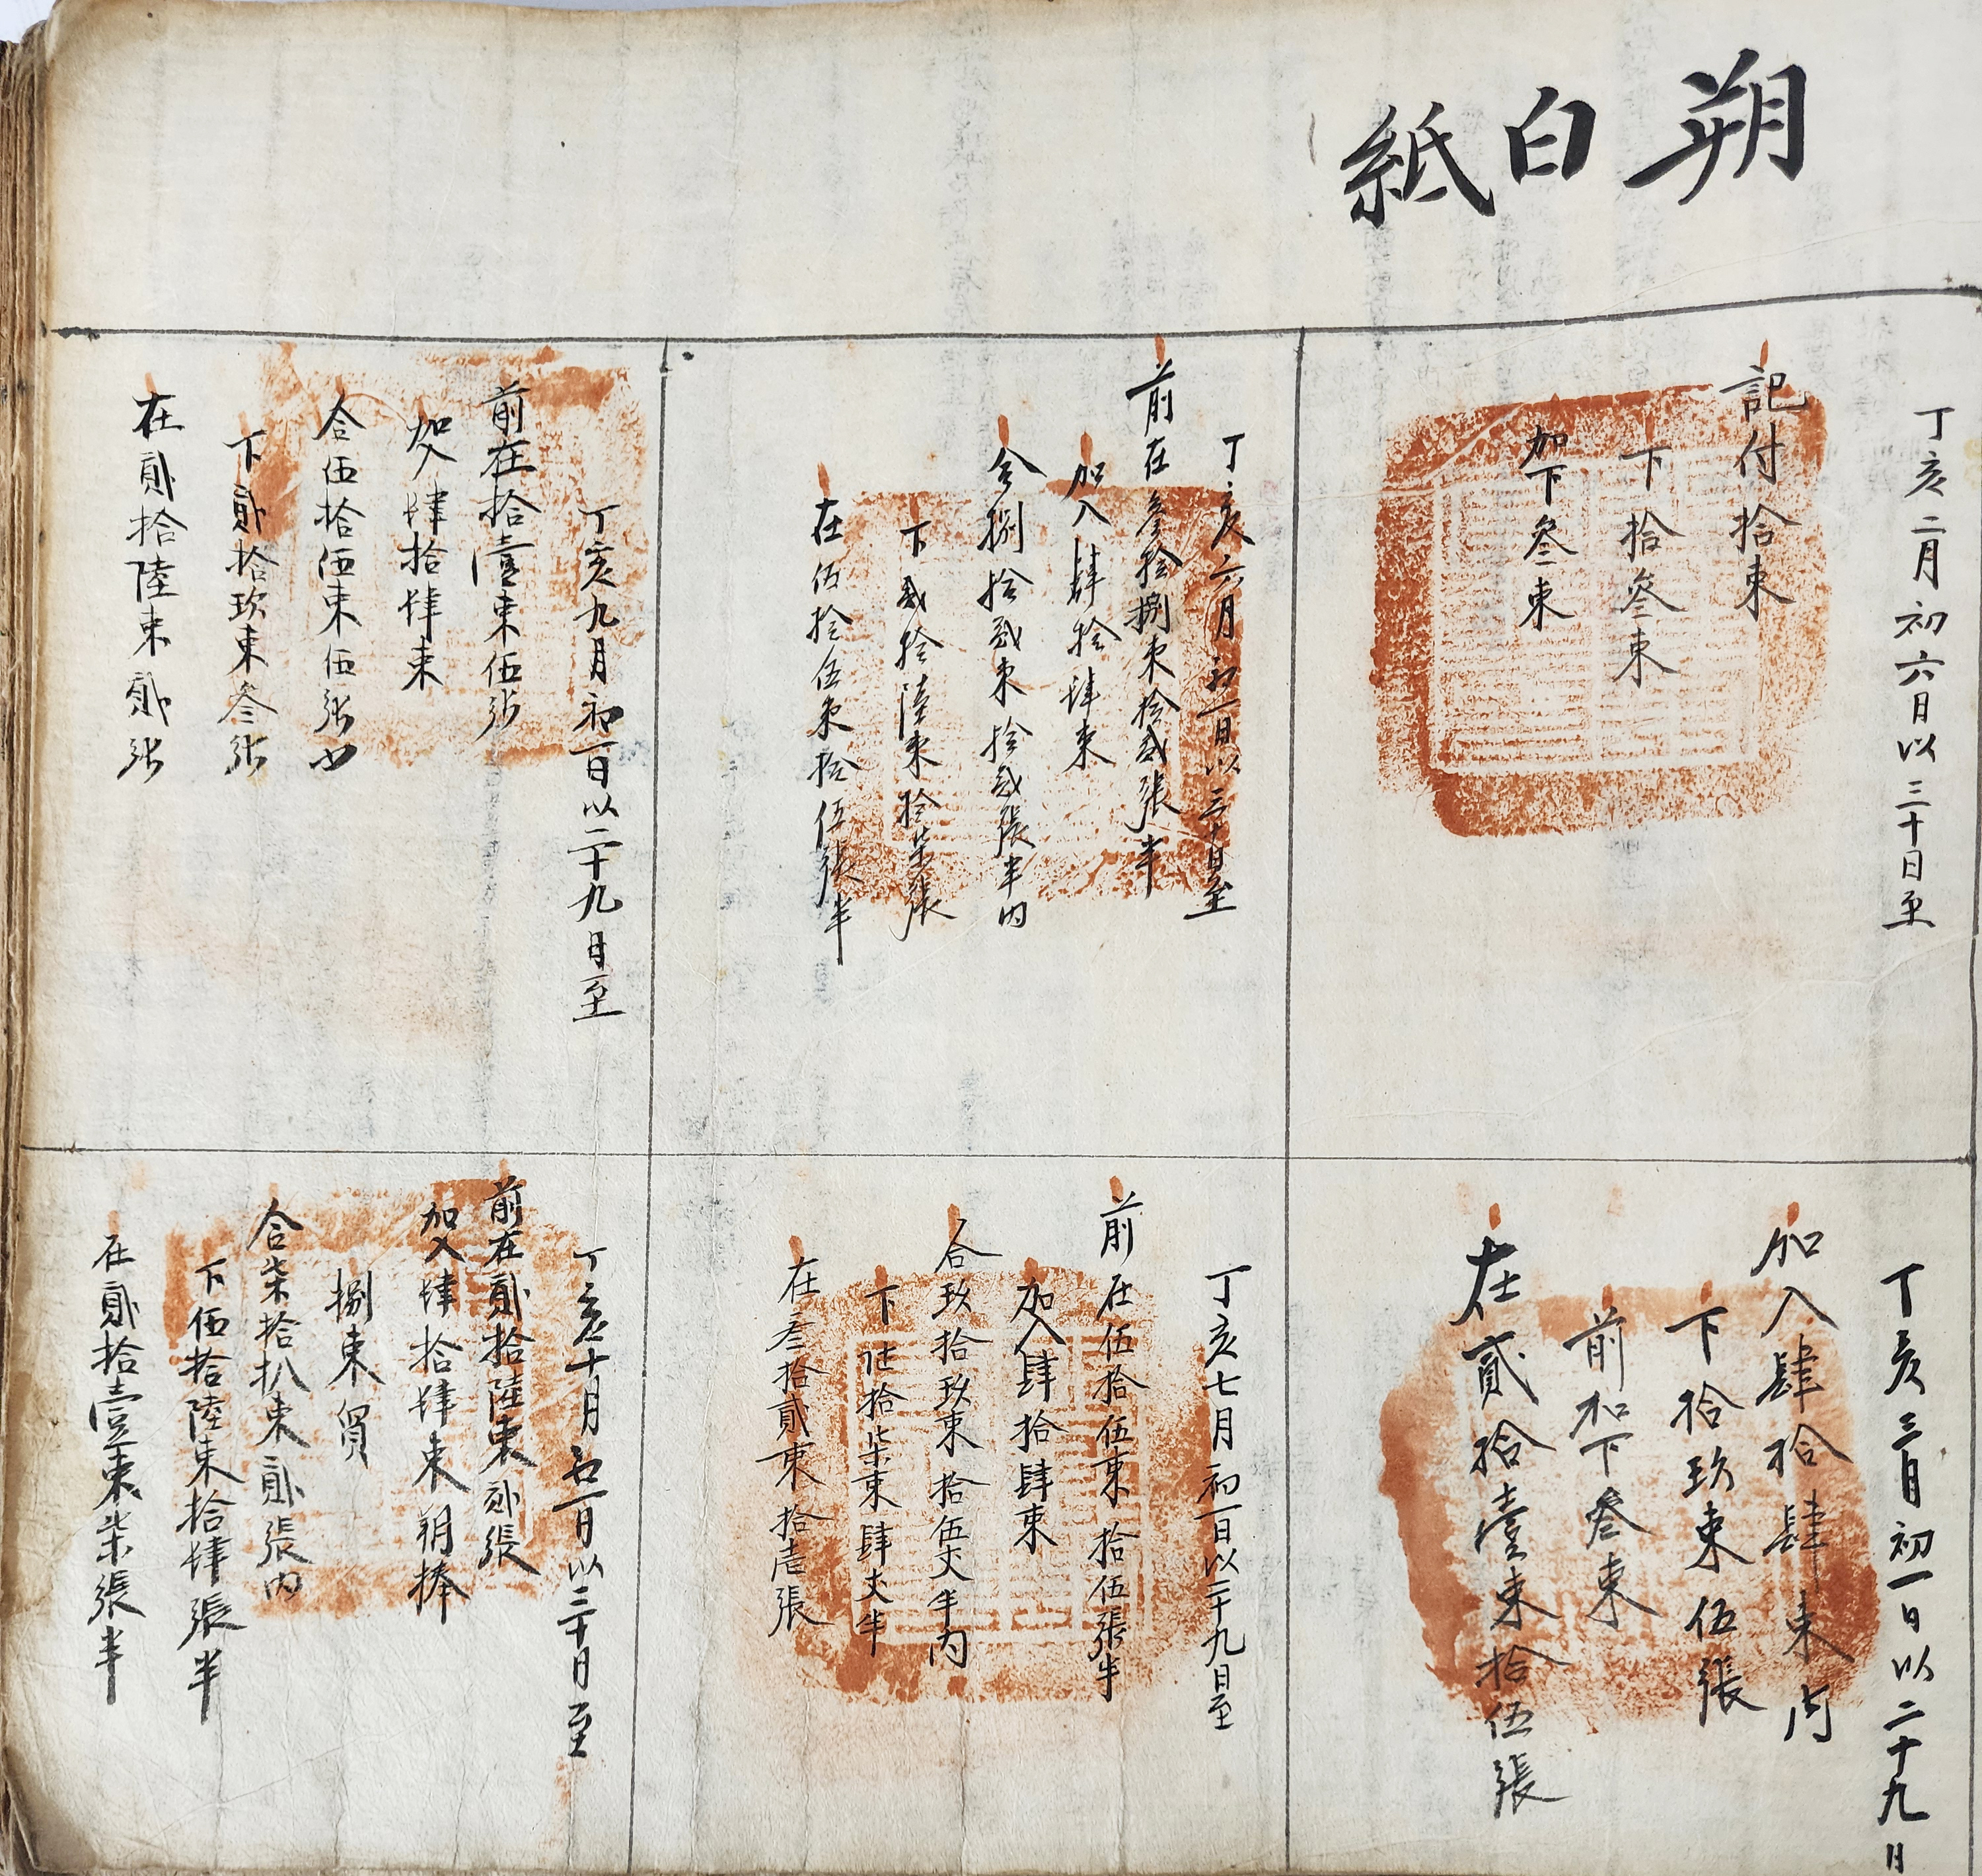 朔白紙
丁亥二月初六日以三十日至
記付拾束
下拾叄束
加下叄束
丁亥三月初一日以二十九日
加入肆拾肆束內
下拾玖束伍張
前加下叄束
在貳拾壹束拾伍張
丁亥六月初一日以三十日至
前在叄拾捌束拾貳張半
加入肆拾肆束
合捌拾貳束拾貳張半內
下貳拾陸束拾柒張
在伍拾伍束拾伍張半
丁亥七月初一日以二十九日至
前在伍拾伍束拾伍張半
加入肆拾肆束
合玖拾玖束拾伍丈半內
下陸拾柒束肆丈半
在叄拾貳束拾壱張
丁亥九月初一日以二十九日至
前在拾壹束伍張
加入肆拾肆束
合伍拾伍束伍張內
下貳拾玖束叄張
在貳拾陸束貳張
丁亥十月初一日以三十日至
前在貳拾陸束貳張
加入肆拾肆束朔捧
捌束貿
合柒拾扒束貳張內
下伍拾陸束拾肆張半
在貳拾壹束柒張半